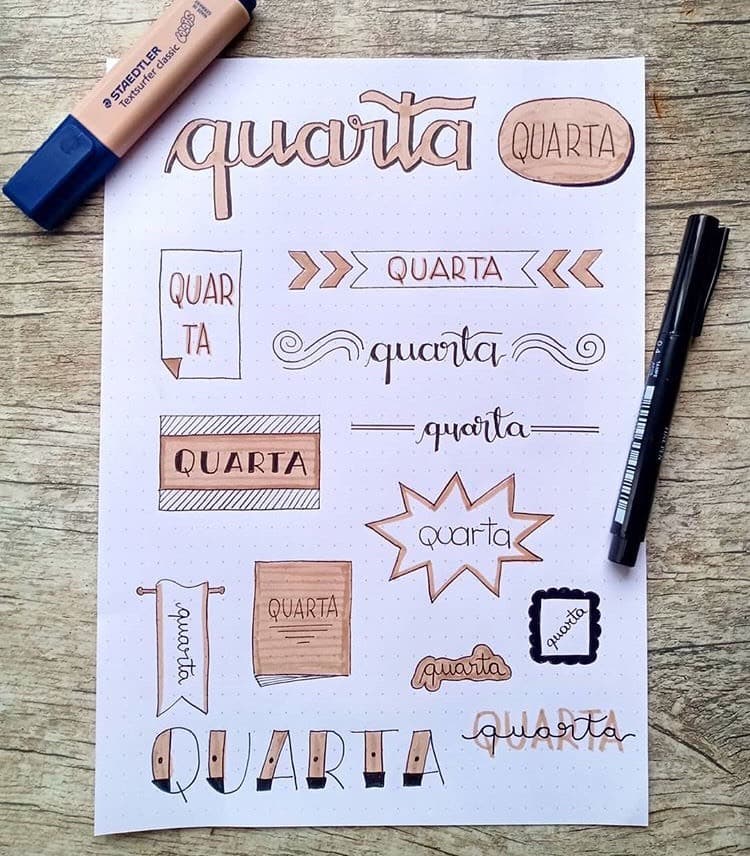 STAEDTLER
Textsurfer classic
quarta
QUARTA
QUAR
TA
QUARTA
quarta
QUARTA
quarta
Quarta
quarta
QUARTA
quarta
quarta
QUARTA
QUARTA
quarta